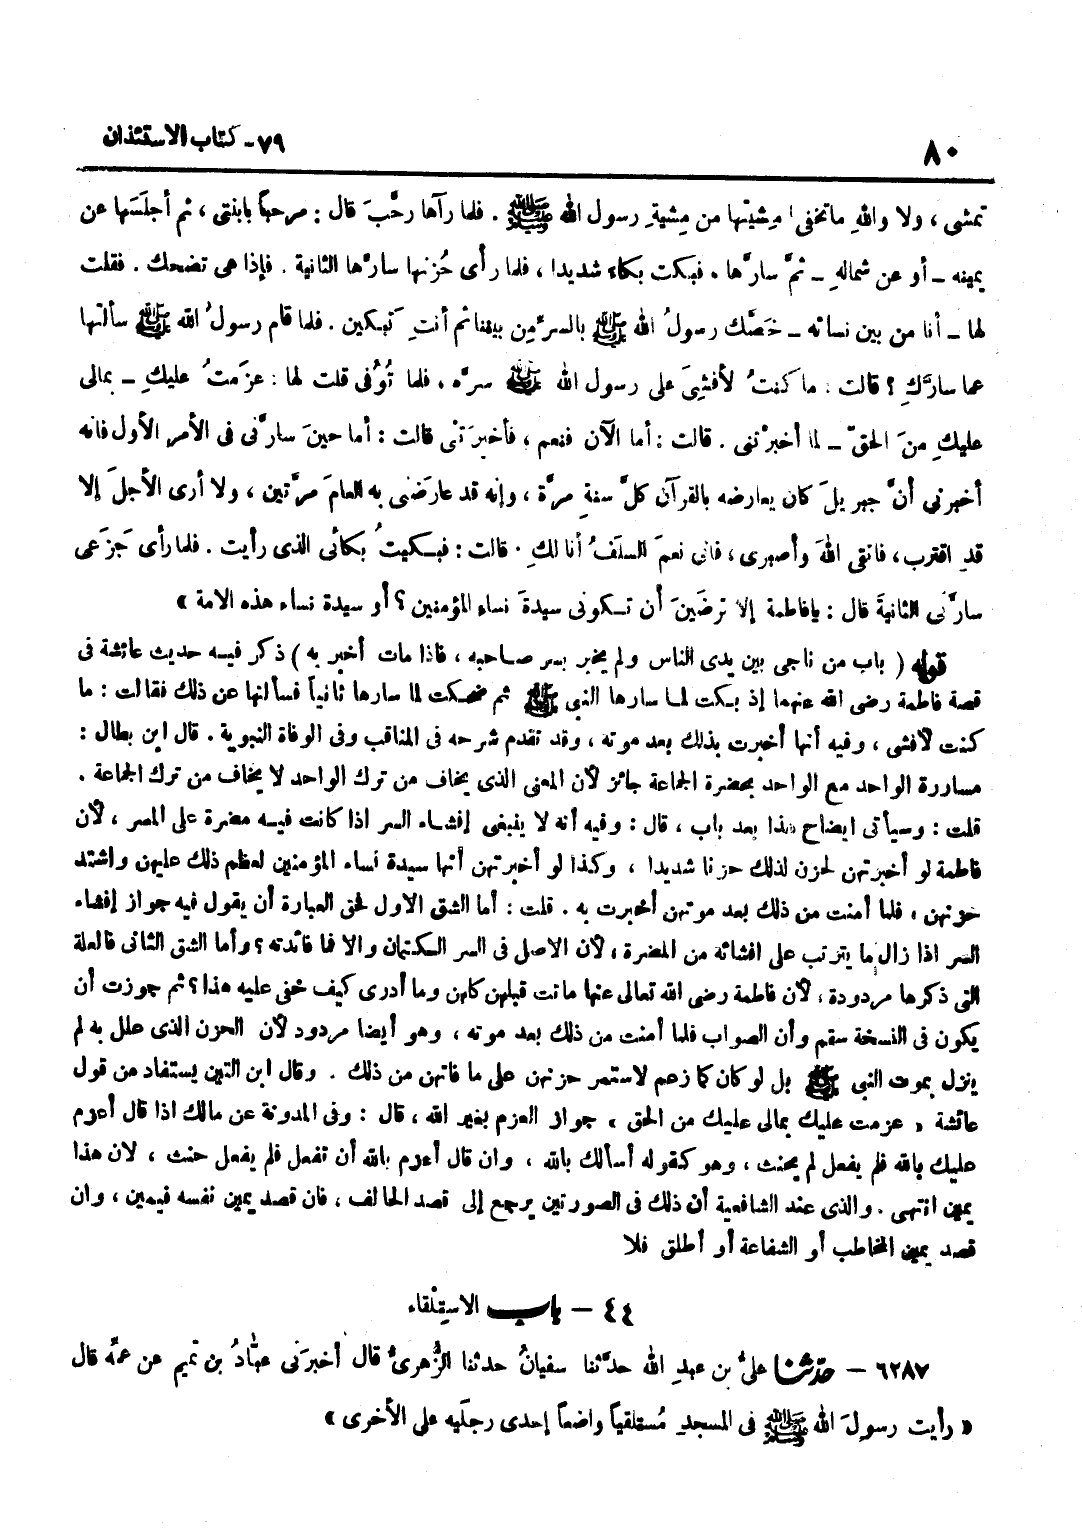 ٨٠
٧٩ - كتاب الاستئذان
تمشى ، ولا واللهِ ماتخفى مِشيتها من مِشيةِ رسول الله ﷺ . فلما رآها رحَّبَ قال : مرحباً بابنتى ، ثم أجلَسَها عن
يمينه ــ أو عن شمالهِ ــ ثمَّ سارَّها . فبكت بكاء شديدا ، فلما رأى حُزنها سارَّها الثانية . فإذا هى تضحك . فقلت
لها ــ أنا من بين نسائه ــ خَصَّك رسولُ الله ﷺ بالسرِّ من بيننا ثم أنتِ تَبكين . فلما قام رسولُ الله ﷺ سألتها
عما سارَّكِ ؟ قالت : ما كنتُ لأفشِىَ على رسول الله ﷺ سرَّه . فلما تُوُفى قلت لها : عزَمتُ عليكِ ــ بمالى
عليكِ منَ الحقّ ــ لما أخبرْتنى . قالت : أما الآن فنعم ، فأخبرَتْنى قالت : أما حينَ سارَّنى فى الأمرِ الأول فانه
أخبرنى أنَّ جبريلَ كان يعارضه بالقرآن كلَّ سنةٍ مرَّة ، وإنه قد عارَضنى به العامَ مرَّتين ، ولا أرى الأجلَ إلا
قدِ اقترب ، فاتقى اللهَ وأصبرى ، فانى نعمَ السلَفُ أنا لكِ . قالت : فبكيتُ بكائى الذى رأيت . فلما رأى جَزَعى
سارَّنى الثانيةَ قال : يافاطمة إلا ترضَينَ أن تكونى سيدةَ نساءِ المؤمنين ؟ أو سيدة نساء هذه الامة »
قوله ( باب من ناجى بين يدى الناس ولم يخبر بسر صاحبه ، فاذا مات أخبر به ) ذكر فيه حديث عائشة فى
قصة فاطمة رضى الله عنهما إذ بكت لما سارها النبي ﷺ ثم ضحكت لما سارها ثانياً فسألتها عن ذلك فقالت : ما
كنت لأفشى ، وفيه أنها أخبرت بذلك بعد موته ، وقد تقدم شرحه فى المناقب وفى الوفاة النبوية . قال ابن بطال :
مساررة الواحد مع الواحد بحضرة الجماعة جائز لأن المعنى الذى يخاف من ترك الواحد لا يخاف من ترك الجماعة .
قلت : وسيأتى ايضاح هذا بعد باب ، قال : وفيه أنه لا ينبغى إفشاء السر اذا كانت فيه مضرة على المسر ، لأن
فاطمة لو أخبرتهن لحزن لذلك حزنا شديدا ، وكذا لو أخبرتهن أنها سيدة نساء المؤمنين لعظم ذلك عليهن واشتد
حزنهن ، فلما أمنت من ذلك بعد موتهن أخبرت به . قلت : أما الشق الاول فحق العبارة أن يقول فيه جواز إفشاء
السر اذا زال ما يترتب على افشائه من المضرة ، لأن الاصل فى السر الكتمان والا فما فائدته ؟ وأما الشق الثانى فالعلة
التى ذكرها مردودة ، لأن فاطمة رضى الله تعالى عنها ماتت قبلهن كلهن وما أدرى كيف خفى عليه هذا ؟ ثم جوزت أن
يكون فى النسخة سقم وأن الصواب فلما أمنت من ذلك بعد موته ، وهو أيضا مردود لأن الحزن الذى علل به لم
ينزل بموت النبى ﷺ بل لو كان كما زعم لاستمر حزنهن على ما فاتهن من ذلك . وقال ابن التين يستفاد من قول
عائشة « عزمت عليك بمالى عليك من الحق » جواز العزم بغير الله ، قال : وفى المدونة عن مالك اذا قال أعزم
عليك بالله فلم يفعل لم يحنث ، وهو كقوله أسألك بالله ، وان قال أعزم بالله أن تفعل فلم يفعل حنث ، لان هذا
يمين انتهى . والذى عند الشافعية أن ذلك فى الصورتين يرجع إلى قصد الحالف ، فان قصد يمين نفسه فيمين ، وان
قصد يمين المخاطب أو الشفاعة أو أطلق فلا
٤٤ - باب الاستِلْقاء
٦٢٨٧ - حدّثنا علىُّ بن عبدِ الله حدَّثنا سفيانُ حدثنا الزُّهرىُّ قال أخبرَنى عبّادُ بن تميم عن عمِّه قال
« رأيت رسولَ الله ﷺ فى المسجدِ مُستلقياً واضعاً إحدى رجلَيه على الأخرى »